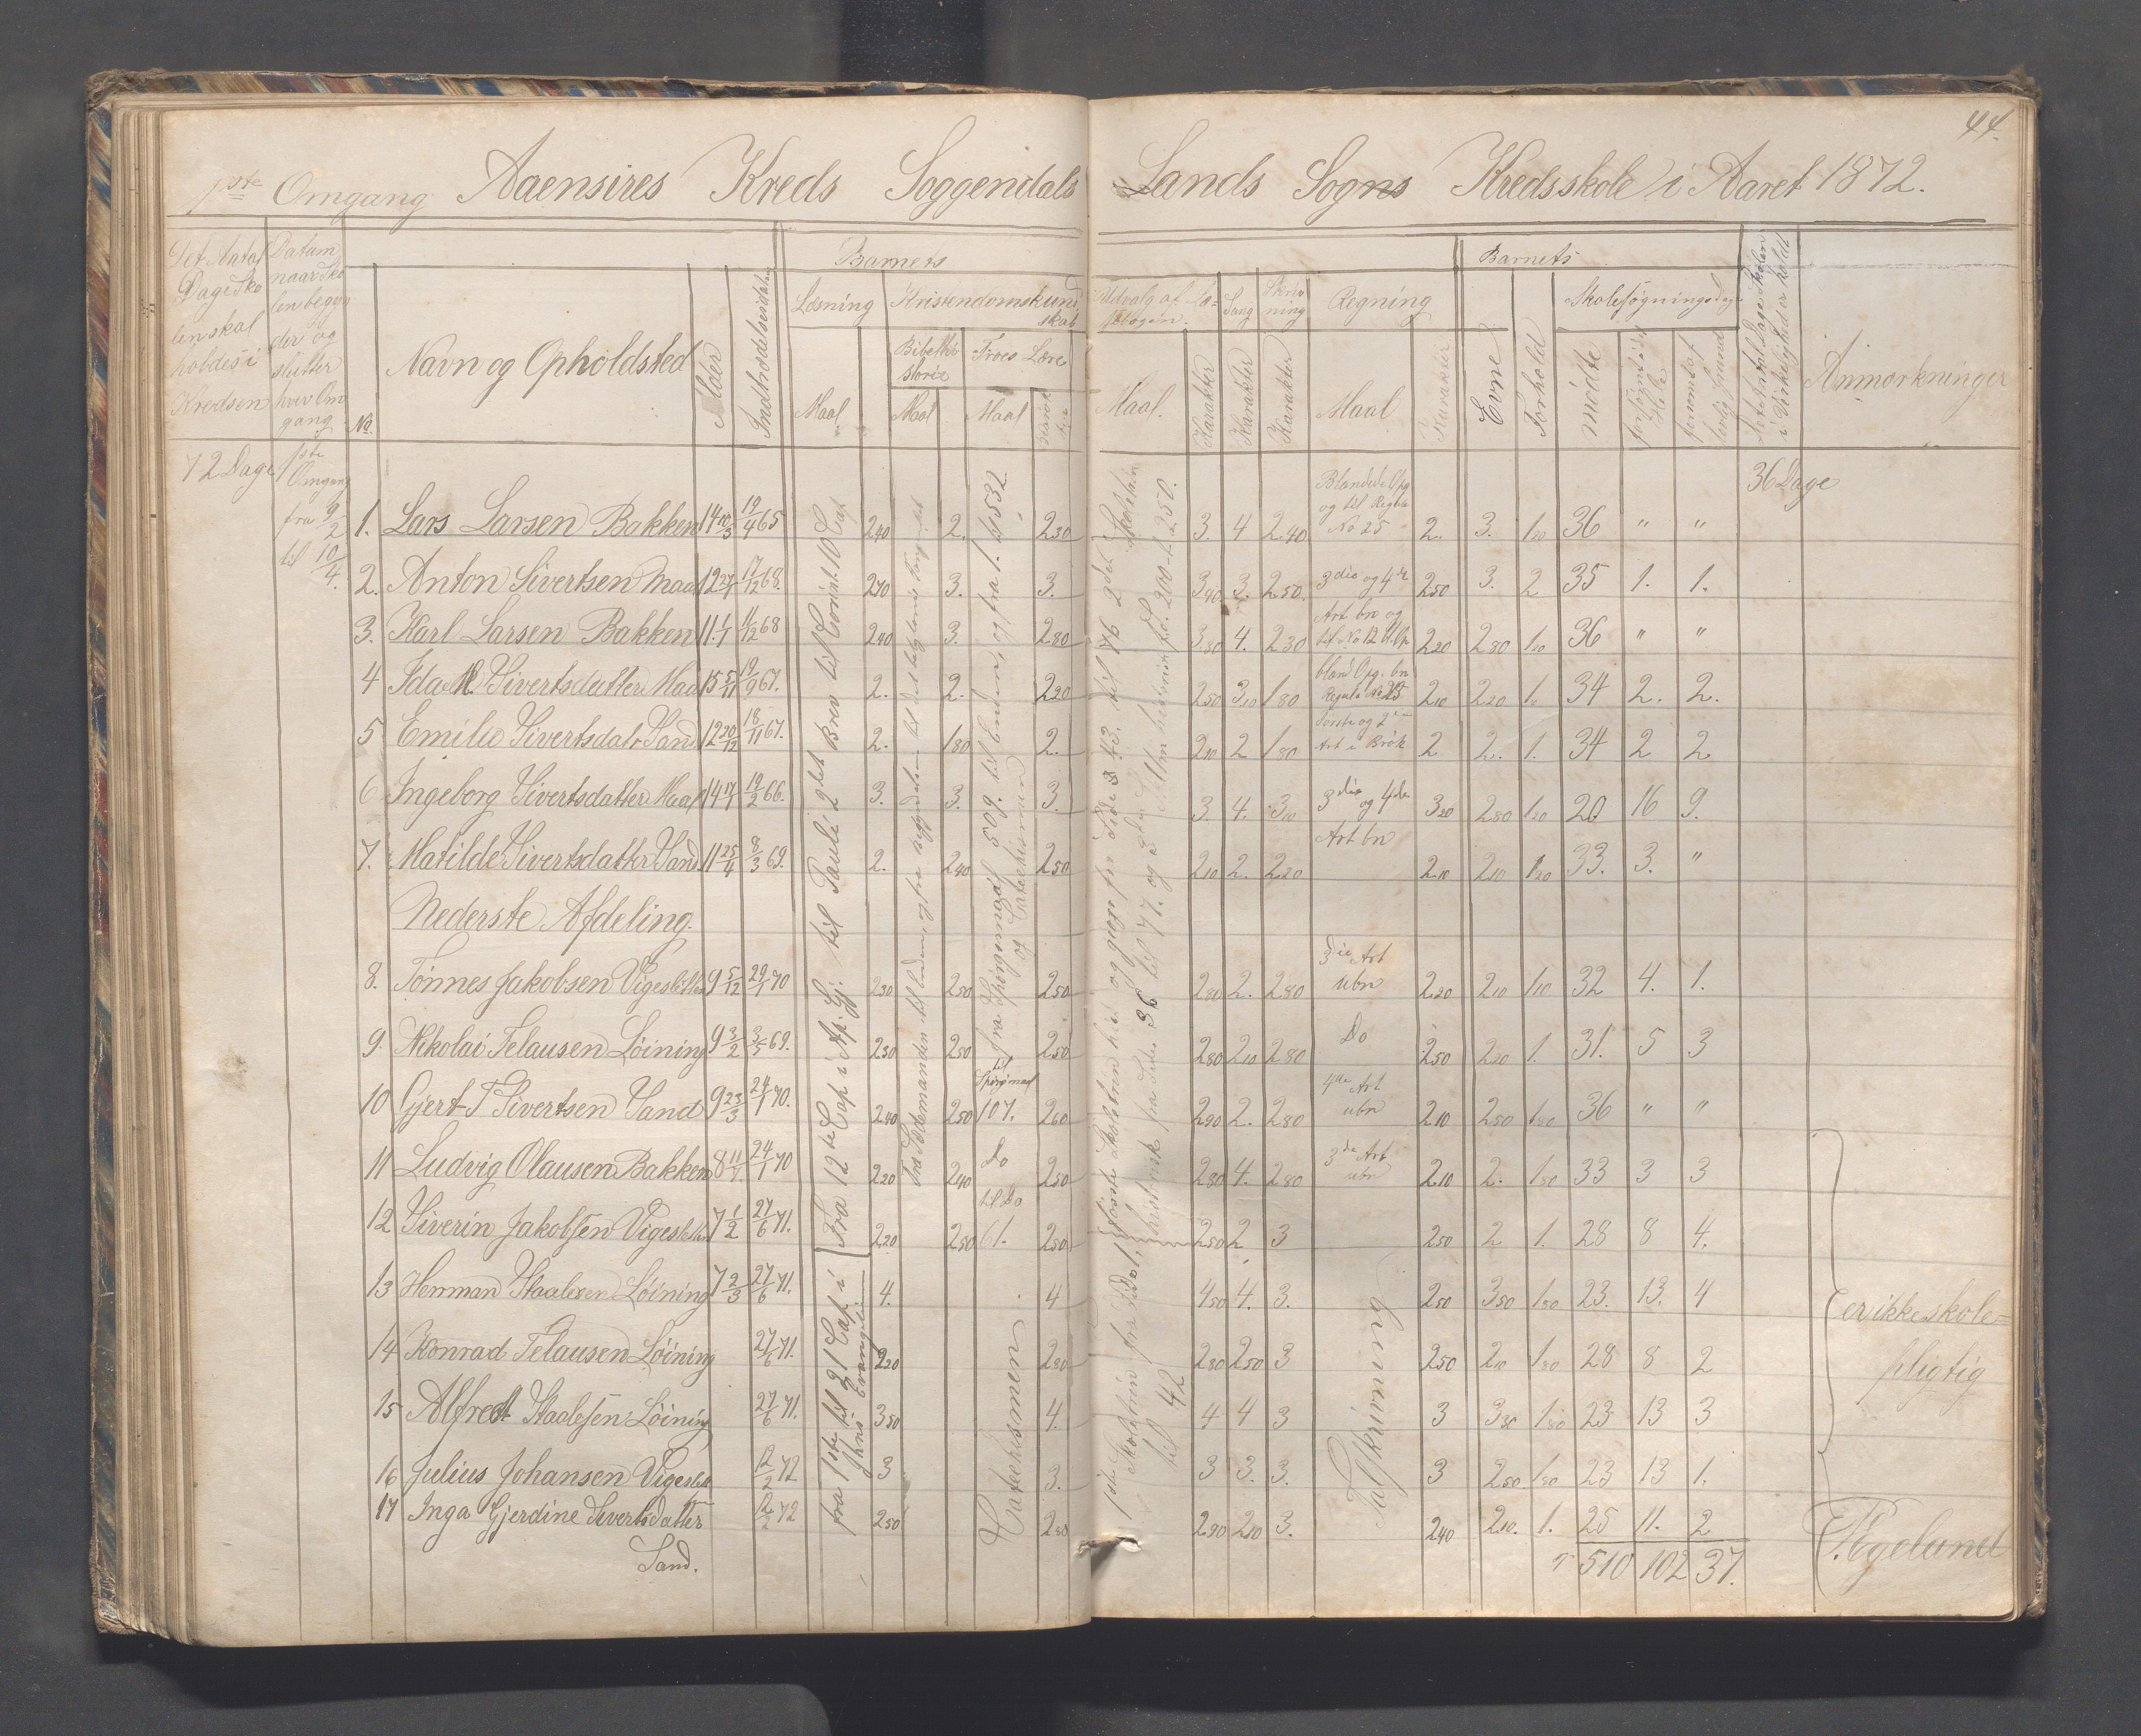 44.
1ste Omgang Aaensires Kreds Soggendals Lands Sogns Kredsskole i Aaret 1872.
Det Antal Dage Skolen skal holdes i Kredsen
Datum naar Skolen begynder og slutter hver Omgang
No.
Navn og Opholdsted
Alder
Indtrædelsesdatum
Barnets
Læsning
Maal
Kristendomskundskab
Bibelhistorie
Maal
Troes Lære
Maal
Udvalg af Læsebogen.
Maal.
Karakter
Sang
Karakter
Skrivning
Karakter
Regning
Maal
Karakter
Barnets
Evne
Forhold
Skolesøgningsdage
mødte
forsømte i det Hele
forsømt af lovlig Grund
Det Antal Dage Skolen i Virkelighed er holdt
Anmærkninger
72 Dage
1ste Omgang fra 9/2 til 10/4.
36 Dage
1. Lars Larsen Bakken 14 19/4 65 240 2. 230 3. 4 240 Blandede Opg og til Regula No 25 2. 3. 120 36 " "
2. Anton Sivertsen Maal 12 17/12 68. 270 3. 3. 340 3. 250. 3die og 4de 250 3. 2 35 1. 1.
3. Karl Larsen Bakken 11 1/1 11/12 68 240 3. 280 380 4. 230 Art bn og 220 280 120 36 " "
4 Ida M. Sivertsdatter Maal 15 5/11 19/9 67. 2. 2. 220 250 310 180 bland Opg. bn Regula No 25 210 220 1. 34 2. 2.
5 Emilie Sivertsdatr Sand 12 20/12 18/11 67. 2. 180 2. 210 2 180 første og 2 Art i Brøk 2 2. 1. 34 2 2
6 Ingeborg Sivertsdatter Maal 14 17/1 12/2 66. 3. 3. 3. 3. 4. 310 3die og 4de 320 280 120 20 16 9.
7. Matilde Sivertsdatter Sand 11 25/4 3/3 69. 2. 240 250 210 2. 220 Art bn 210 210 120 33. 3. "
Nederste Afdeling.
8. Tønnes Jakobsen Vigesletten 9 5/12 29/1 70 230 250 250 280 2. 280 3die Art ubn 220 210 110 32 4. 1.
9. Nikolai Telausen Løining 9 3/2 3/5 69. 230 250 250 280 210 280 Do 250 220 1. 31. 5 3
10 Gjert T Sivertsen Sand 9 23/3 24/1 70. 240 250 til Spørgmaal 107. 260 290 2. 280 4de Art ubn 210 250 180 36 " "
11 Ludvig Olausen Bakken 8 11/1 24/1 70 220 240 Do 250 280 4. 280 3de Art ubn 210 2. 150 33 3 3
12 Siverin Jakobsen Vigesletten 7 1/2 27/6 71. 220 250 til Do 61. 250 250 2 3 250 2 1. 28 8 4.
13 Herman Staalesen Løining 7 2/3 27/6 71. 4. 4 450 4. 3. 250 350 150 23. 13. 4
14 Konrad Telausen Løining 27/6 71. 220 280 280 250 3 250 210 180 28 8 2
15 Alfred Staalesen Løining 27/6 71. 350 4. 4 4 3 3 330 180 23 13 3
16 Julius Johansen Vigeslett 12/2 72 3 3. 3 3. 3. 3 250 180 23 13 1.
17 Inga Gjerdine Sivertsdatter Sand. 12/2 72 250 280 290 210 3. 240 210. 1. 25 11. 2
510 102 37.
Fra 12te Cap i Ap. Gj. til Pauli 2det Brev til Corint. 10 Cap
fra 1ste til 21 Cap i Johs Evangeli
fra Spørgsmaal 509 til Enden, og fra 1. til 532
og Catechismen
Catechismen
Talskrivning
er ikke skolepligtig
T. Egelund